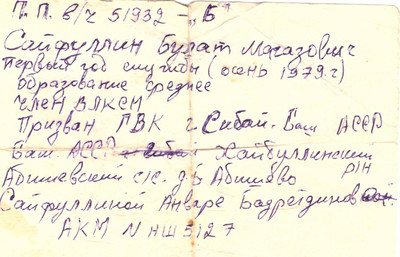 П.П. в/ч 51932 - „Б"
Сайфуллин Булат Магазович
первый год службы (осень 1979.г)
образование среднее
член ВЛКСМ
Призван ГВК г. Сибай. Баш АССР
Баш. АССР Хайбуллинский р/н
Абишевский с/с. д. Абишево
Сайфуллиной Анваре Бадретдиновой.
АКМ N НШ 5127